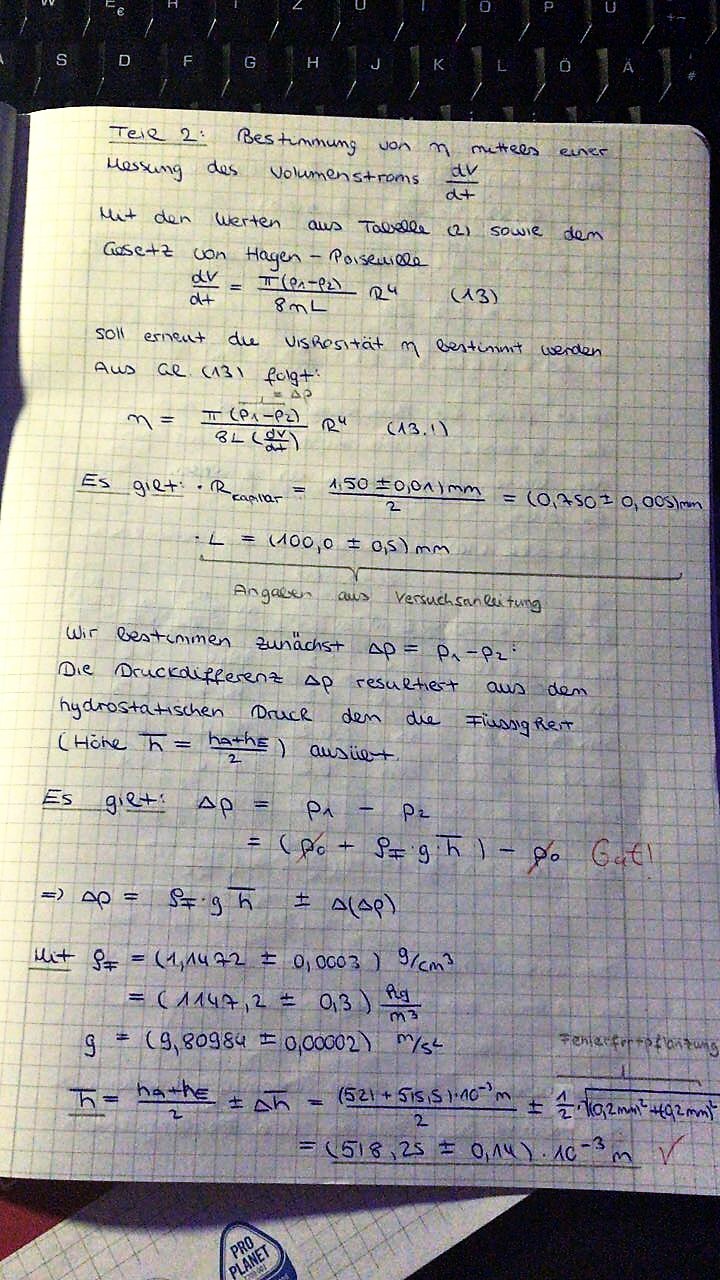 W E € R T Z U I O P Ü + ~
A S D F G H J K L Ö Ä ' #
Teil 2: Bestimmung von η mittels einer
Messung des Volumenstroms dV/dt
Mit den Werten aus Tabelle (2) sowie dem
Gesetz von Hagen-Poiseuille
dV/dt = π(p₁-p₂)/8ηL R⁴ (13)
soll erneut die Viskosität η bestimmt werden
Aus Gl. (13) folgt:
= Δp
η = π(p₁-p₂)/8L(dV/dt) R⁴ (13.1)
Es gilt: · R kapillar = 1,50 ± 0,01) mm/2 = (0,750 ± 0,005) mm
· L = (100,0 ± 0,5) mm
Angaben aus Versuchsanleitung
Wir bestimmen zunächst Δp = p₁-p₂:
Die Druckdifferenz Δp resultiert aus dem
hydrostatischen Druck den die Flüssigkeit
(Höhe h̅ = hA+hE/2) ausübt.
Es gilt: Δp = p₁ - p₂
= (p₀ + ρF·g·h̅) - p₀ Gut!
=> Δp = ρF·g h̅ ± Δ(Δp)
Mit ρF = (1,1472 ± 0,0003) g/cm³
= (1147,2 ± 0,3) kg/m³
g = (9,80984 ± 0,00002) m/s²
Fehlerfortpflanzung
h̅ = hA+hE/2 ± Δh̅ = (521 + 515,5)·10⁻³m/2 ± 1/2·√(0,2mm²+(0,2mm)²
= (518,25 ± 0,14)·10⁻³ m √
PRO
PLANET